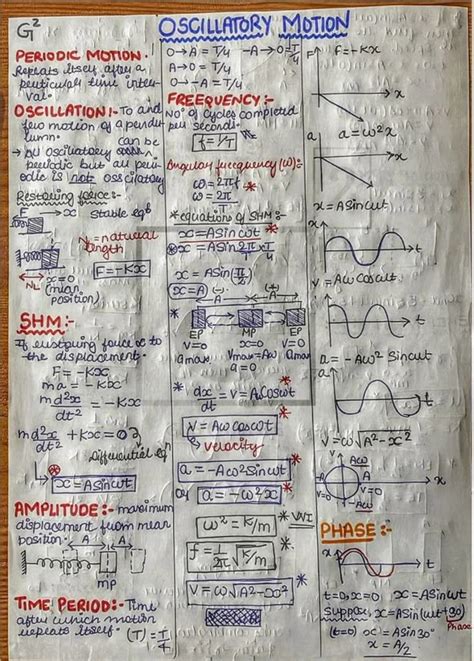 G²
OSCILLATORY MOTION
PERIODIC MOTION.
Repeats itself after a
particular time inter-
val.
OSCILLATION:- To and
fro motion of a pendu
lum.
→ All oscillatory can be
periodic but all peri-
odic is not osscilatory
Restoring force:-
F → x stable eqb
N = natural
length
NL x=0
(mean
position)
F=-Kx
SHM:-
If restoring force ∝ to
the displacement.
F = -Kx
ma = -Kx
md²x/dt² = -Kx
md²x/dt² + Kx = 0
Differential eqn
x=ASinωt
AMPLITUDE:- maximum
displacement from mean
position.
A A
mp
TIME PERIOD:- Time
after which motion
repeats itself. (T) = T/4
O→A = T/4 -A→O = T/4
A→O = T/4
O→-A = T/4
FREEQUENCY:-
No° of cycles completed
per second.
f=1/T
Angular frequency (ω):-
ω = 2πf
ω = 2π/T *
*equations of SHM:-
x=ASinωt *
x=ASin 2π/T × T/4
x = ASin(π/2)
x=A (-) (+)
EP MP EP
v=0 x=0 v=0
amax Vmax=Aω amax
a=0
* dx/dt = v = AωCosωt
v = AωCosωt
→ Velocity
a = -Aω²Sinωt *
Or a = -ω²x *
ω² = k/m * VVI
f = 1/2π √k/m *
V = ω√A²-x² *
F f=-Kx
x
a a=ω²x
x
x=ASinωt
t
v = AωCosωt
t
a = -Aω² Sinωt
t
V=ω√A²-x²
Aω
V=0 V=0
Aω
PHASE:-
x t
t=0, x=0 x=ASinωt
Suppose x=ASin(ωt+90)
Phase
(t=0) x=ASin30°
x = A/2